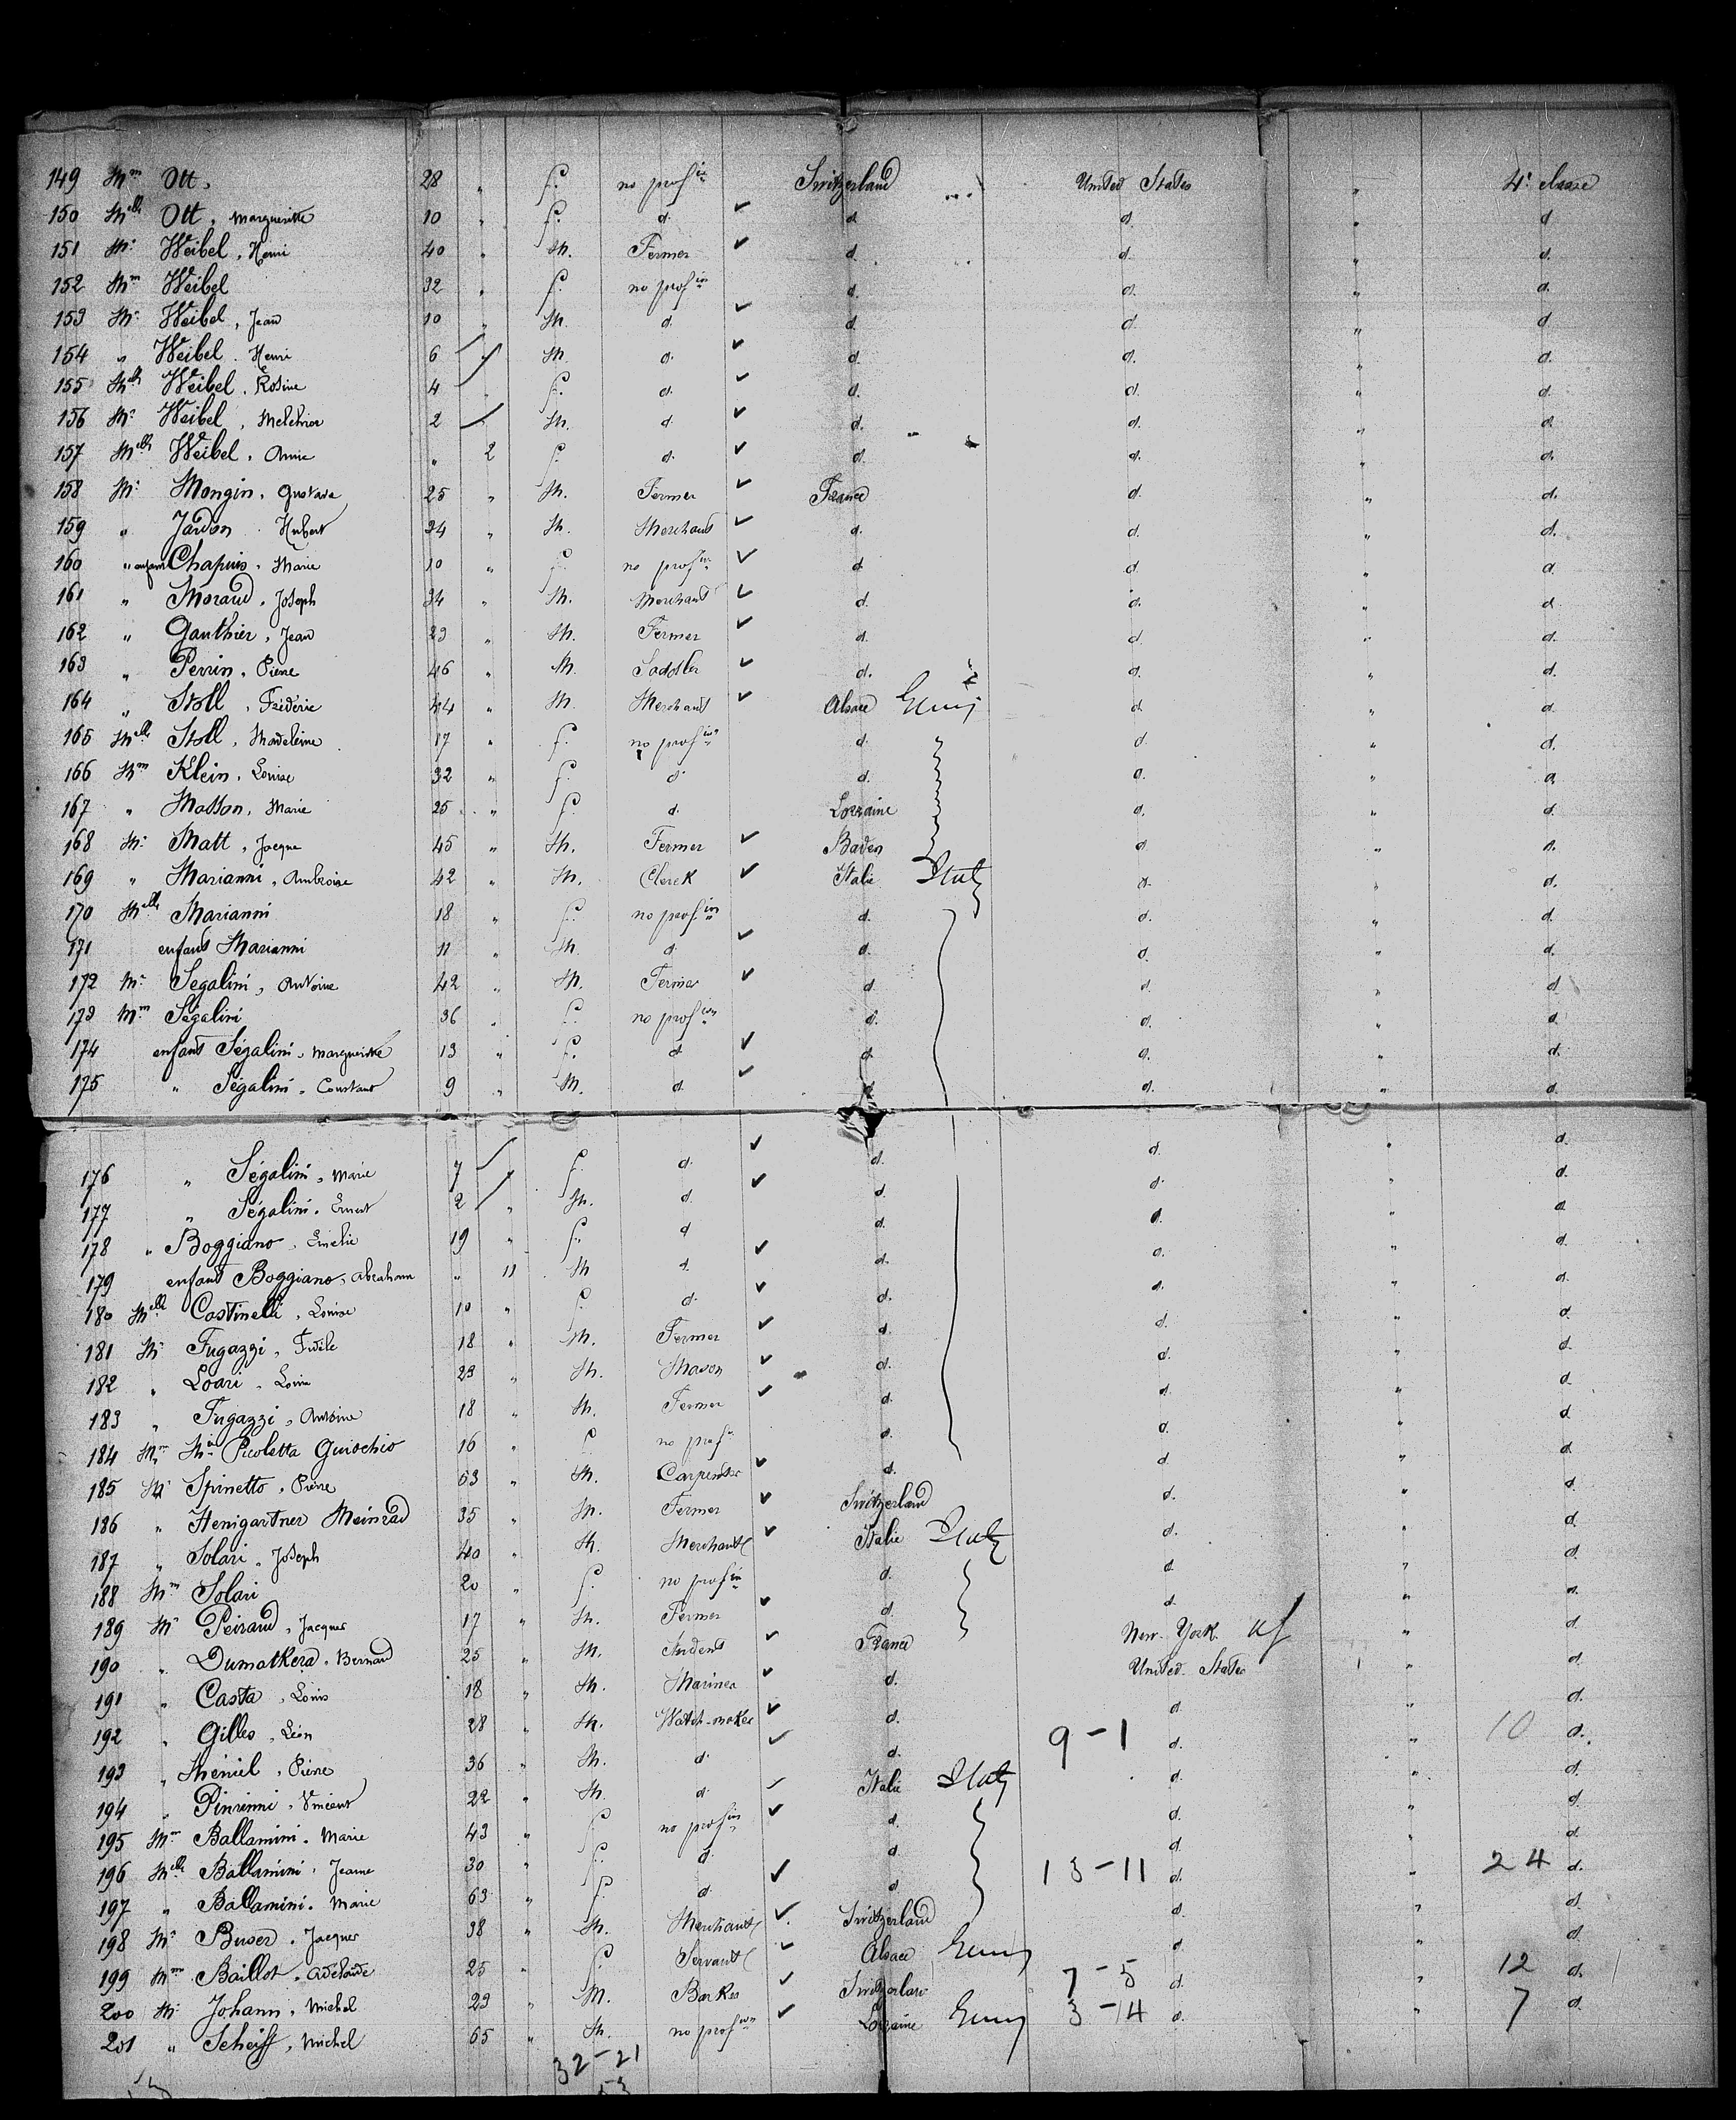 149 Mme Ott, 28 " f. no profion Switzerland United States " 4e classe
150 Melle Ott, Margueritte 10 " f. d. ✓ d. d. " d
151 Mr Weibel, Henri 40 " M. Fermer ✓ d. d. " d.
152 Mme Weibel 32 " f. no profion d. d. " d.
153 Mr Weibel, Jean 10 " M. d. ✓ d. d. " d
154 " Weibel, Henri 6 " M d. ✓ d. d. " d.
155 Melle Weibel, Rosine 4 " f. d. ✓ d. d. " d.
156 Mr Weibel, Melchior 2 M. d. ✓ d. d. " d.
157 Melle Weibel, Annie " 2 f. d. ✓ d. d. " d.
158 Mr Mongin, Gustave 25 " M. Fermer ✓ France d. " d.
159 " Jardon Hubert 34 " M. Merchand ✓ d. d. " d.
160 " enfant Chapuis, Marie 10 " f. no profion ✓ d d. " d
161 " Moraud, Joseph 34 " M. Merchant ✓ d. d. " d
162 " Gauthier, Jean 23 " M. Fermer ✓ d. d. " d.
163 " Perrin, Pierre 46 " M. Saddler ✓ d. d. " d.
164 " Stoll, Fréderic 44 " M. Merchant ✓ Alsace Germy d " d.
165 Melle Stoll, Madeleine 17 " f. no profion d. d. " d.
166 Mme Klein, Louise 32 " f. d. d. d. " d.
167 " Masson, Marie 25 " f. d. Lorraine d. " d.
168 Mr Matt, Jacque 45 " M. Fermer ✓ Baden d " d.
169 " Marianni, Ambroise 42 " M. Clerck ✓ Italie Italy d. " d.
170 Melle Marianni 18 " f. no profion d. d. " d
171 enfant Marianni 11 " M. d. ✓ d. d. " d.
172 Mr Segalini, Antoine 42 " M. Fermer ✓ d d. " d
173 Mme Ségalini 36 " f. no profion d. d. " d.
174 enfant Ségalini, Margueritte 13 " f. d ✓ d d. " d.
175 " Ségalini, Constant 9 " M. d. ✓ d d. " d
176 " Ségalini, Marie 7 f. d. ✓ d. d. " d.
177 " Ségalini, Ernest 2 " M. d. ✓ d. d. " d.
178 " Boggiano, Emelie 19 " f. d d. d. " d
179 enfant Boggiano, Abraham " 11 M d. ✓ d. d. " d.
180 Melle Castinelli, Louise 10 " f. d. ✓ d. d. " d.
181 Mr Fugazzi, Fidèle 18 " M. Fermer ✓ d. d. " d.
182 " Loari, Louis 23 " M. Mason ✓ d. d. " d.
183 " Fugazzi, Antoine 18 " M. Fermer ✓ d. d. " d.
184 Mme Picoletta Guiochio 16 " f. no profn d. d. " d.
185 Mr Spinetto, Pierre 53 " M. Carpenter ✓ d. d. " d.
186 " Henigartner Meinrad 35 " M. Fermer ✓ Switzerland d. " d.
187 " Solari, Joseph 40 " M. Merchant ✓ Italie Italy d. " d.
188 Mme Solari 20 " f. no profion d. d. " d.
189 Mr Peiraud, Jacques 17 " M. Fermer ✓ d. d. " d.
190 " Dumatkera, Bernard 25 " M. Student ✓ France New-York " d.
191 " Casta, Louis 18 " M. Mariner ✓ d. United-States " d.
192 " Gilles, Léon 28 " M. Watch-maker ✓ d. 9-1 d. " 10 d.
193 " Méniel, Pierre 36 " M. d. ✓ d. d. " d.
194 " Pinrinni, Vincent 22 " M. d. ✓ Italie Italy d. " d.
195 Mme Ballamini, Marie 43 " f. no profion ✓ d. d. " d.
196 Melle Ballamini, Jeanne 30 " f. d. d. 13-11 d. " 24 d.
197 " Ballamini, Marie 63 " f. d. ✓ d. d. " d.
198 Mr Buser, Jacques 38 " M. Merchant ✓ Switzerland d. " d.
199 Mme Baillot, Adélaïde 25 " f. Servant ✓ Alsace Germy d " d
200 Mr Johann, Michel 29 " M. Barker ✓ Switzerland 7-5 d. " 12 d.
201 " Scheiff, Michel 65 " M. no profion ✓ Lorraine Germy 3-14 d. " 7 d.
32-21
53